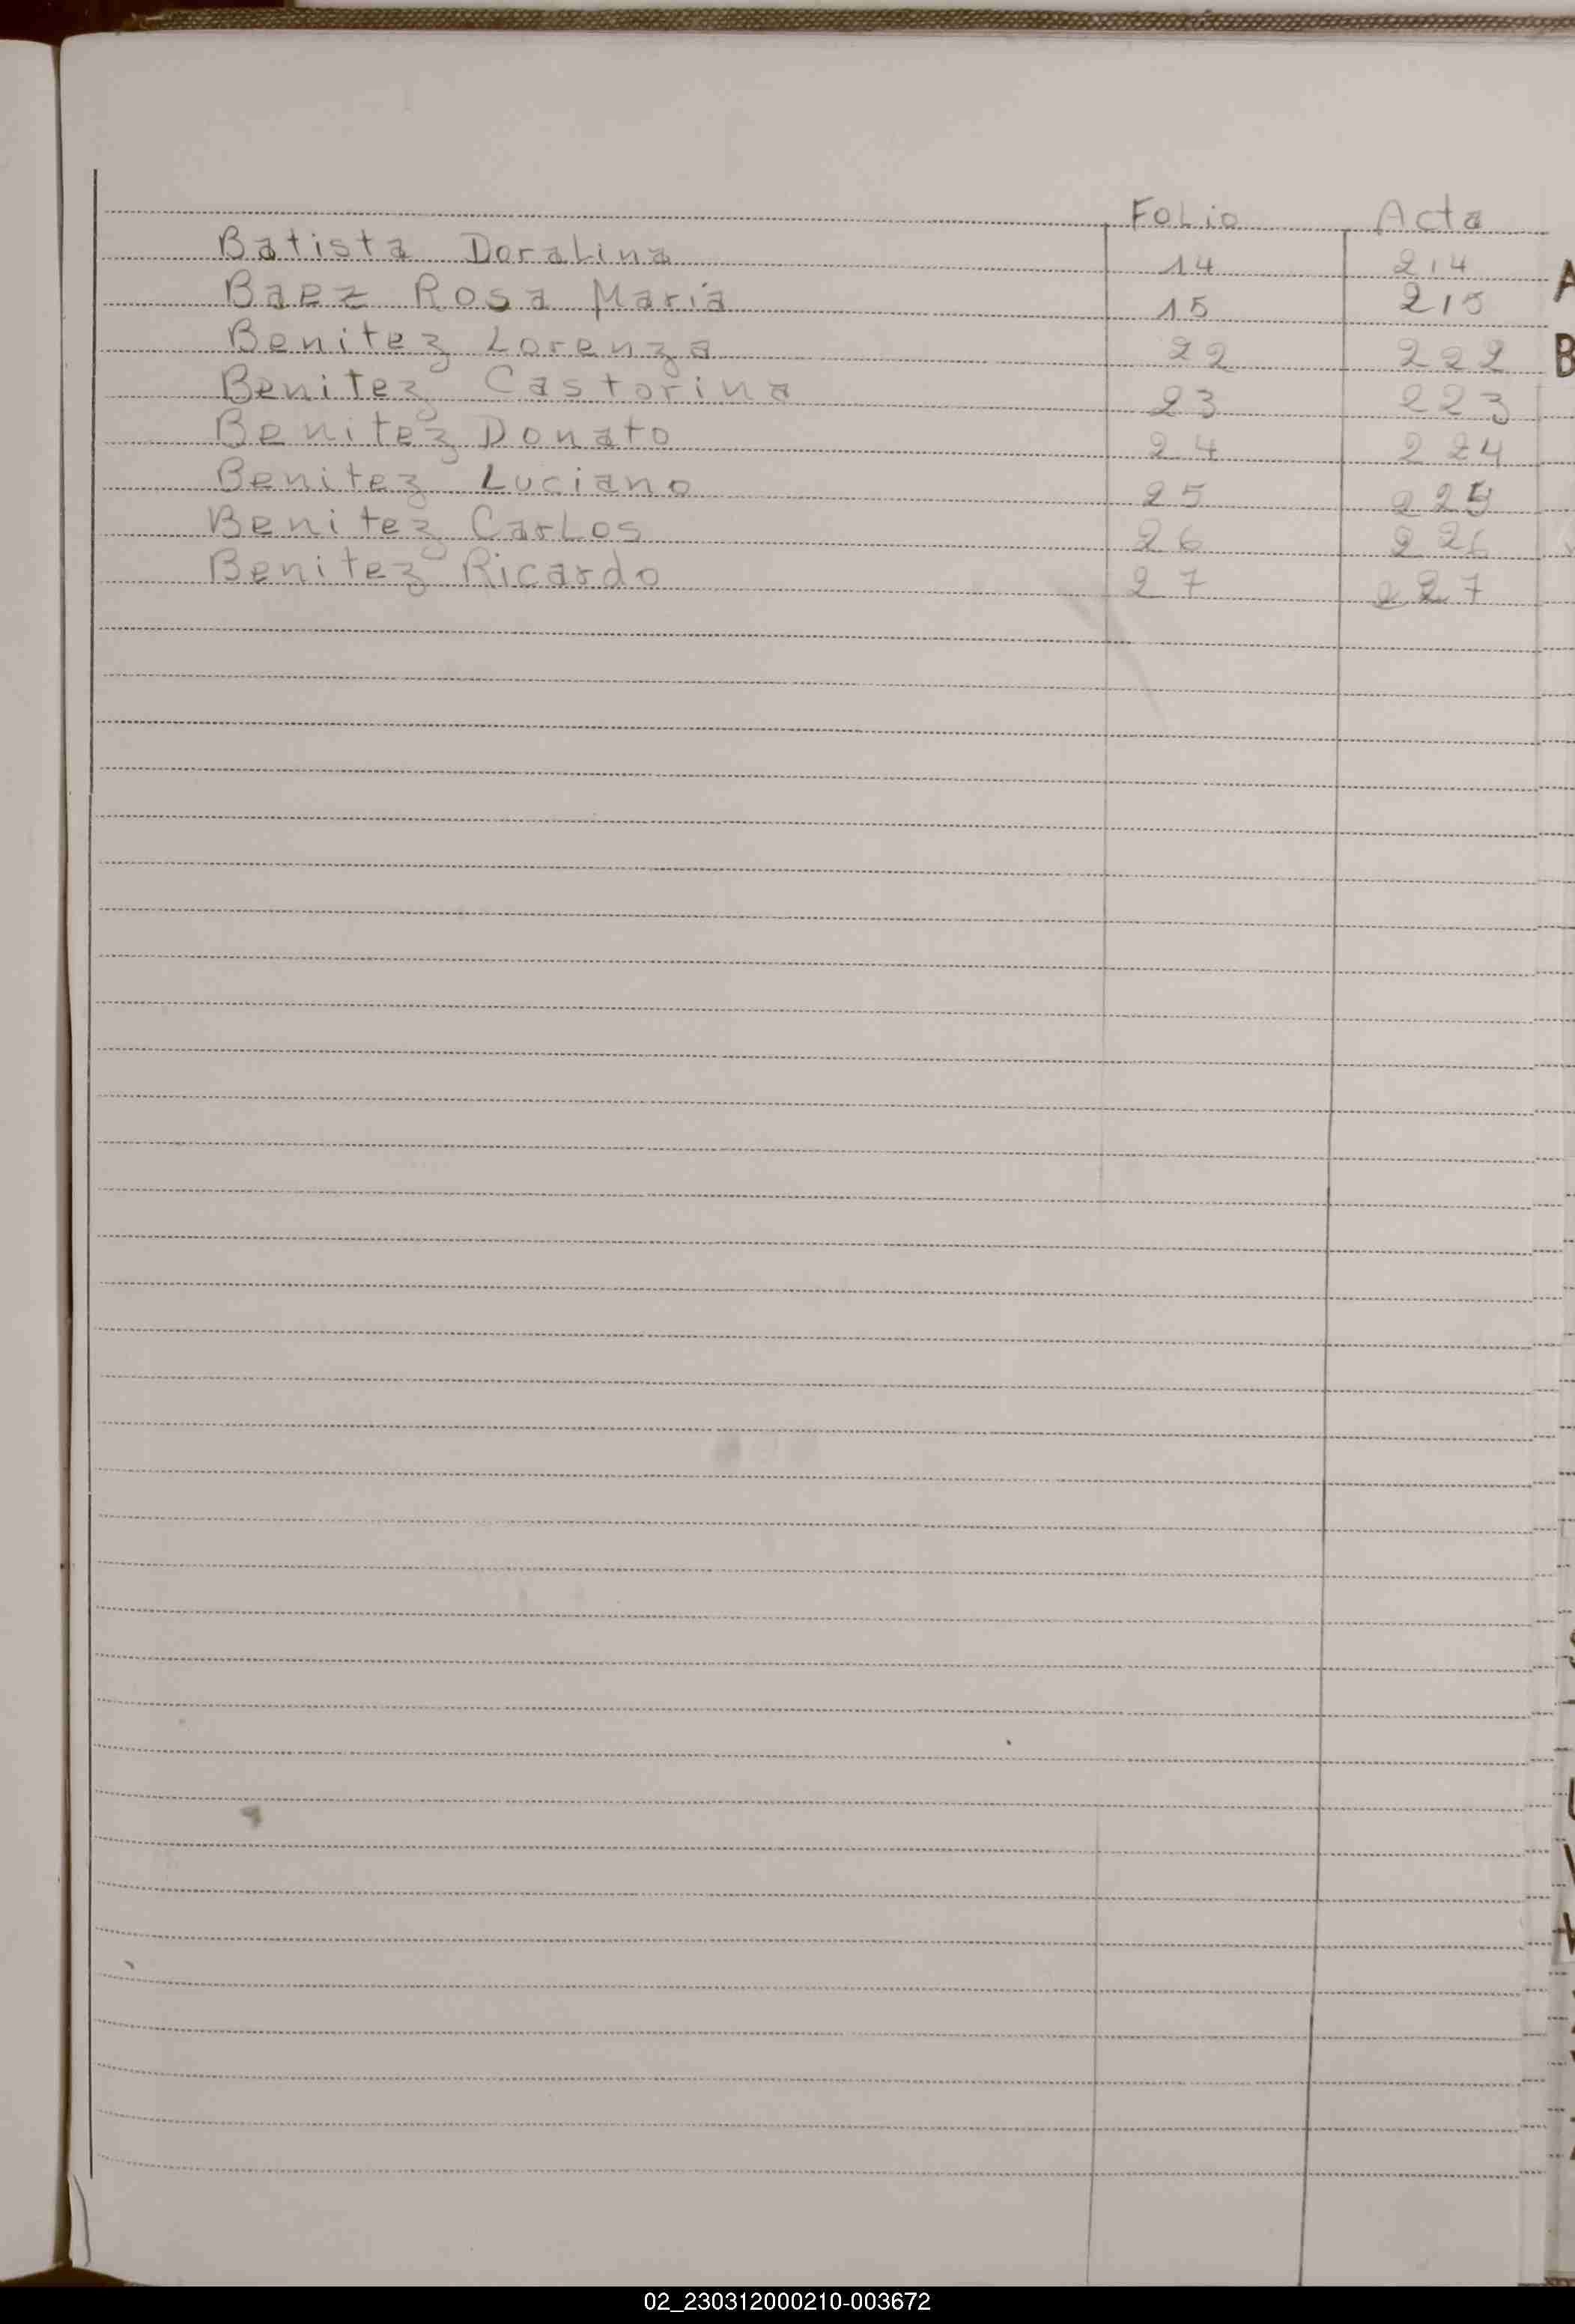 Folio Acta
Batista Doralina 14 214
Baez Rosa Maria 15 215
Benitez Lorenza 22 222
Benitez Castorina 23 223
Benitez Donato 24 224
Benitez Luciano 25 225
Benitez Carlos 26 226
Benitez Ricardo 27 227
A
B
02_230312000210-003672